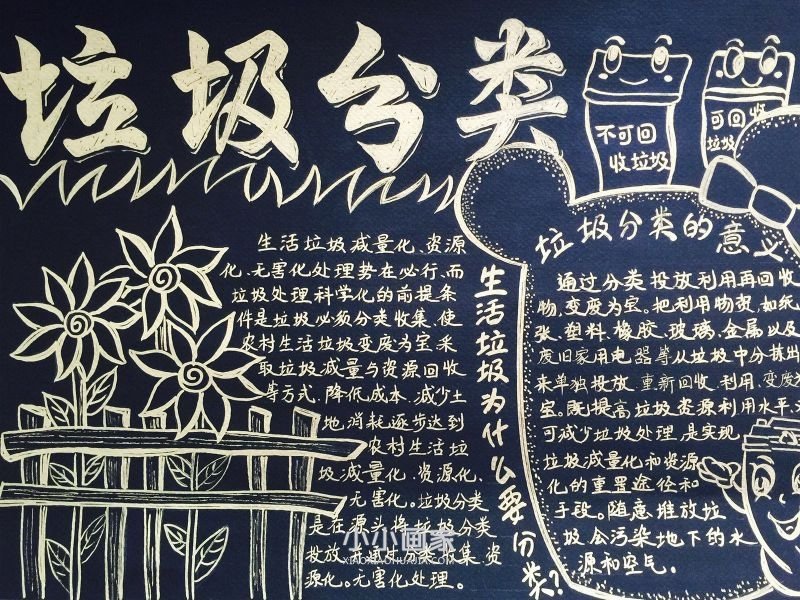 垃圾分类
不可回
收垃圾
可回收
垃圾
生活垃圾减量化、资源
化、无害化处理势在必行,而
垃圾处理科学化的前提条
件是垃圾必须分类收集,使
农村生活垃圾变废为宝,采
取垃圾减量与资源回收
等方式,降低成本,减少土
地,消耗逐步达到
农村生活垃
圾减量化、资源化、
无害化。垃圾分类
是在源头将垃圾分类
投放,并通过分类收集,资
源化。无害化处理。
生活垃圾为什么要分类?
垃圾分类的意义
通过分类投放利用再回收
物,变废为宝。把利用物资,如纸
张、塑料、橡胶、玻璃、金属以及
废旧家用电器等从垃圾中分拣出
来单独投放,重新回收、利用、变废为
宝。既提高垃圾资源利用水平,又
可减少垃圾处理,是实现
垃圾减量化和资源
化的重置途径和
手段。随意堆放垃
圾会污染地下的水
源和空气。
小小画家
XIAOXIAOHUAJIA.COM